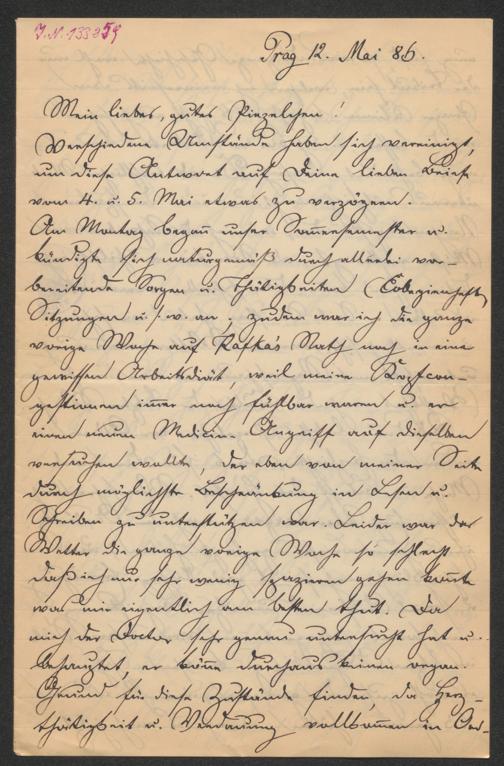 J.N. 133259
Prag 12. Mai 86.
Mein liebes, gutes Pinzelchen!
Verschiedene Umstände haben sich vereinigt,
um diese Antwort auf Deine lieben Briefe
vom 4. u. 5. Mai etwas zu verzögern.
Am Montag begañ unser Som̃ersemester u.
kündigte sich naturgemäß durch allerlei vor-
bereitende Sorgen u. Thätigkeiten (Collegienhefte,
Sitzungen u. s. w. an; zudem war ich die ganze
vorige Woche auf Kafka's Rath noch in eine
gewissen Arbeitsdiät, weil meine Kopfcon-
gestionen im̃er noch fühlbar waren u. er
einen neuen Medicin-Angriff auf dieselben
versuchen wollte, der eben von meiner Seite
durch möglichste Beschränkung in Lesen u.
Schreiben zu unterstützen war. Leider war das
Wetter die ganze vorige Woche so schlecht
daß ich nur sehr wenig spazieren gehen koñte
was mir eigentlich am besten thut. Da
mich der Doctor sehr genau untersucht hat u.
behauptet, er köñe durchaus keinen organ.
Grund für diese Zustände finden, da Herz-
thätigkeit u. Verdauung vollkom̃en in Ord-